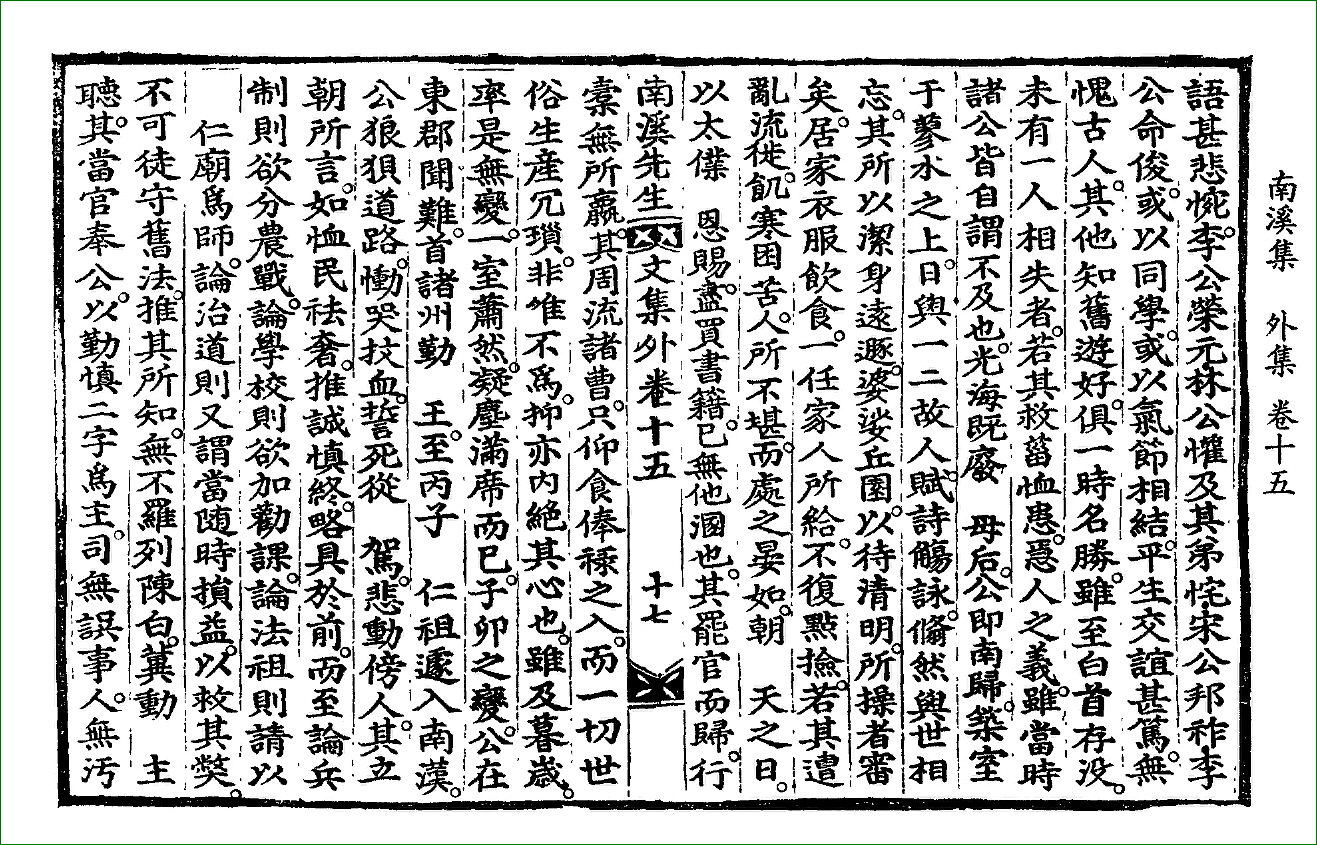 南溪集　外集　卷十五
語甚悲惋李公榮元林公懽及其弟恮宋公邦祚李
公命俊或以同學或以氣節相結平生交誼甚篤無
愧古人其他知舊遊好俱一時名勝雖至白首存没
未有一人相失者若其救菑恤患愿人之義雖當時
諸公皆自謂不及也光海既廢　母后公即南歸築室
于蓼水之上日與一二故人賦詩觴詠翛然與世相
忘其所以潔身遠遯婆娑丘園以待清明所操者審
矣居家衣服飲食一任家人所給不復點撿若其遭
亂流徙飢寒困苦人所不堪而處之晏如朝　天之日
以太僕　恩賜盡買書籍已無他溷也其罷官而歸行
南溪先生文集外卷十五　十七
橐無所贏其周流諸曹只仰食俸祿之入而一切世
俗生產冗瑣非惟不爲抑亦内絕其心也雖及暮歲
率是無變一室蕭然凝塵滿席而已子卯之變公在
東郡聞難首諸州勤　王至丙子　仁祖遽入南漢
公狼狽道路慟哭抆血誓死從　駕悲動傍人其立
朝所言如恤民祛奢推誠慎終略具於前而至論兵
制則欲分農戰論學校則欲加勸課論法祖則請以
仁廟爲師論治道則又謂當随時損益以救其獘
不可徒守舊法推其所知無不羅列陳白冀動　主
聽其當官奉公以勤慎二字爲主司無誤事人無汚